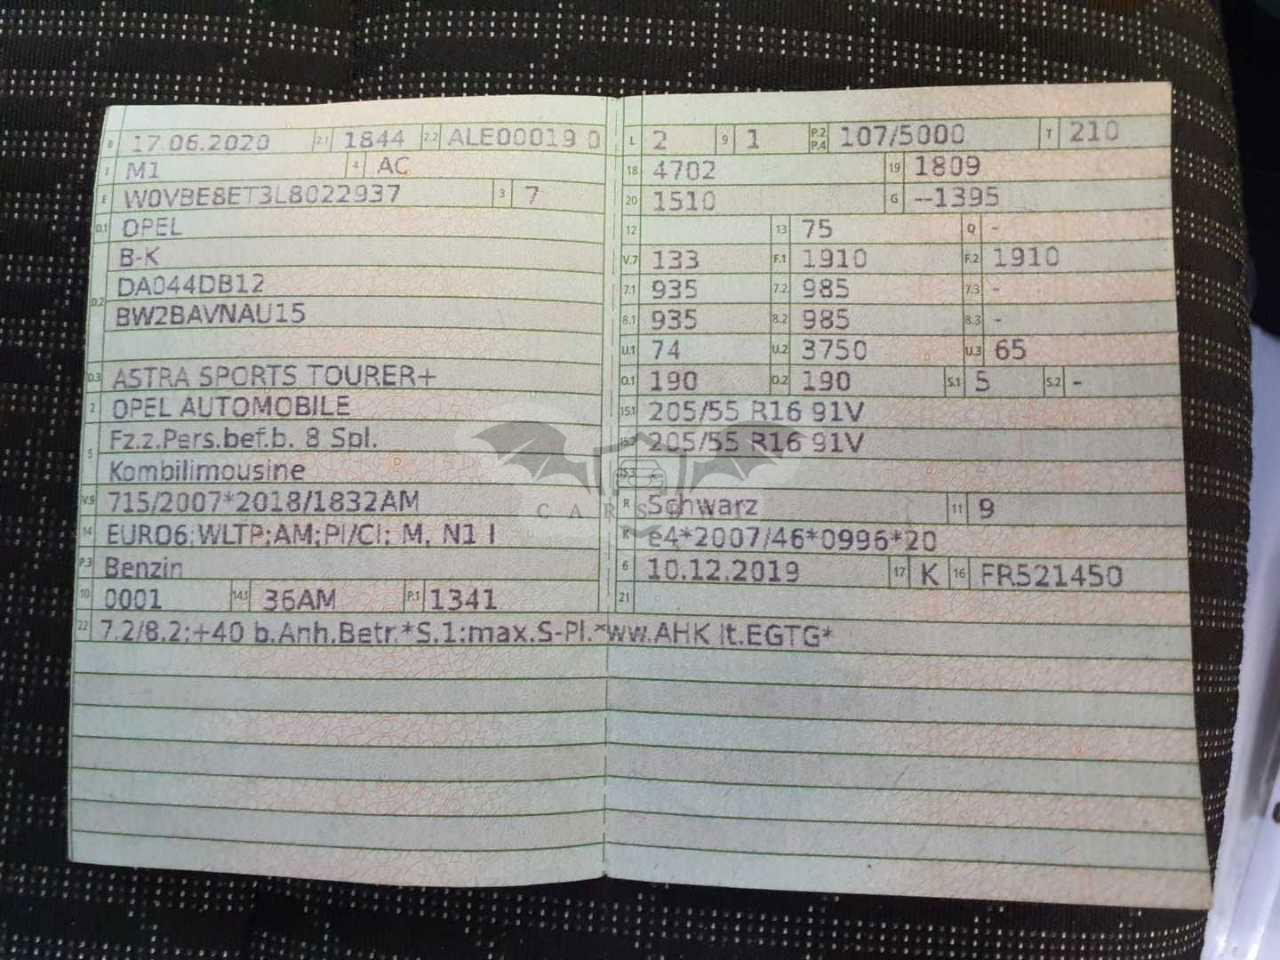 B 17.06.2020 2.1 1844 2.2 ALE00019 0
J M1 4 AC
E W0VBE8ET3L8022937 3 7
D.1 OPEL
B-K
D.2 DA044DB12
BW2BAVNAU15
D.3 ASTRA SPORTS TOURER+
2 OPEL AUTOMOBILE
5 Fz.z.Pers.bef.b. 8 Spl.
Kombilimousine
V.9 715/2007*2018/1832AM
14 EURO6;WLTP;AM;PI/CI; M, N1 I
P.3 Benzin
10 0001 14.1 36AM P.1 1341
22 7.2/8.2:+40 b.Anh.Betr.*S.1:max.S-Pl.*ww.AHK lt.EGTG*
L 2 9 1 P.2 P.4 107/5000 T 210
18 4702 19 1809
20 1510 G --1395
12 13 75 Q -
V.7 133 F.1 1910 F.2 1910
7.1 935 7.2 985 7.3 -
8.1 935 8.2 985 8.3 -
U.1 74 U.2 3750 U.3 65
O.1 190 O.2 190 S.1 5 S.2 -
15.1 205/55 R16 91V
15.2 205/55 R16 91V
15.3 -
R Schwarz 11 9
K e4*2007/46*0996*20
6 10.12.2019 17 K 16 FR521450
21